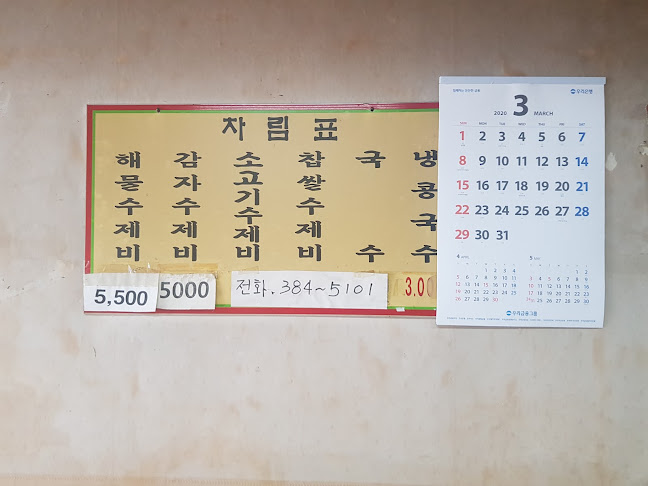 차림표
해물수제비
감자수제비
소고기수제비
찹쌀수제비
국수
냉콩국수
5,500
5000
전화. 384~5101
3.00
우리은행
2020 3 MARCH
SUN MON TUE WED THU FRI SAT
1 2 3 4 5 6 7
8 9 10 11 12 13 14
15 16 17 18 19 20 21
22 23 24 25 26 27 28
29 30 31
4 APRIL
1 2 3 4
5 6 7 8 9 10 11
12 13 14 15 16 17 18
19 20 21 22 23 24 25
26 27 28 29 30
5 MAY
1 2
3 4 5 6 7 8 9
10 11 12 13 14 15 16
17 18 19 20 21 22 23
24/31 25 26 27 28 29 30
우리금융그룹